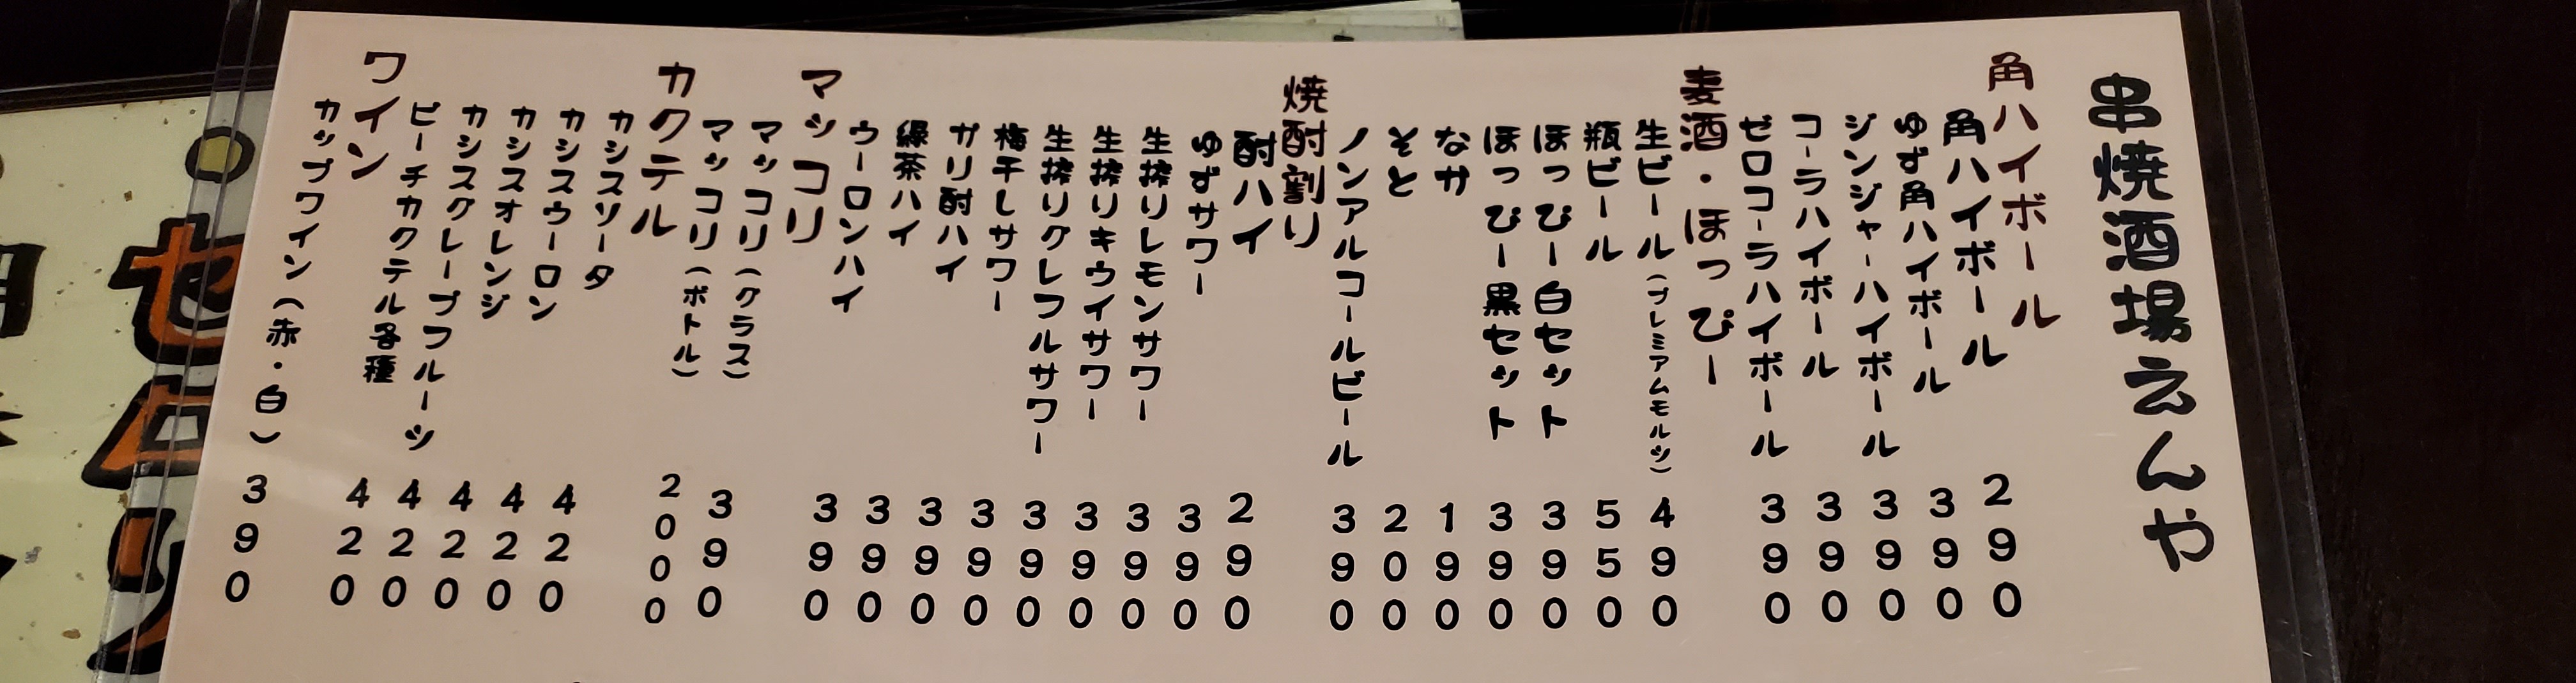 串焼酒場えんや
角ハイボール
角ハイボール 290
ゆず角ハイボール 390
ジンジャーハイボール 390
コーラハイボール 390
ゼロコーラハイボール 390
麦酒・ほっぴー
生ビール(プレミアムモルツ) 490
瓶ビール 550
ほっぴー白セット 390
ほっぴー黒セット 390
なか 190
そと 200
ノンアルコールビール 390
焼酎割り
酎ハイ 290
ゆずサワー 390
生搾りレモンサワー 390
生搾りキウイサワー 390
生搾りグレフルサワー 390
梅干しサワー 390
ガリ酎ハイ 390
緑茶ハイ 390
ウーロンハイ 390
マッコリ
マッコリ(グラス) 390
マッコリ(ボトル) 2000
カクテル
カシスソーダ 420
カシスウーロン 420
カシスオレンジ 420
カシスグレープフルーツ 420
ピーチカクテル各種 420
ワイン
カップワイン(赤・白) 390